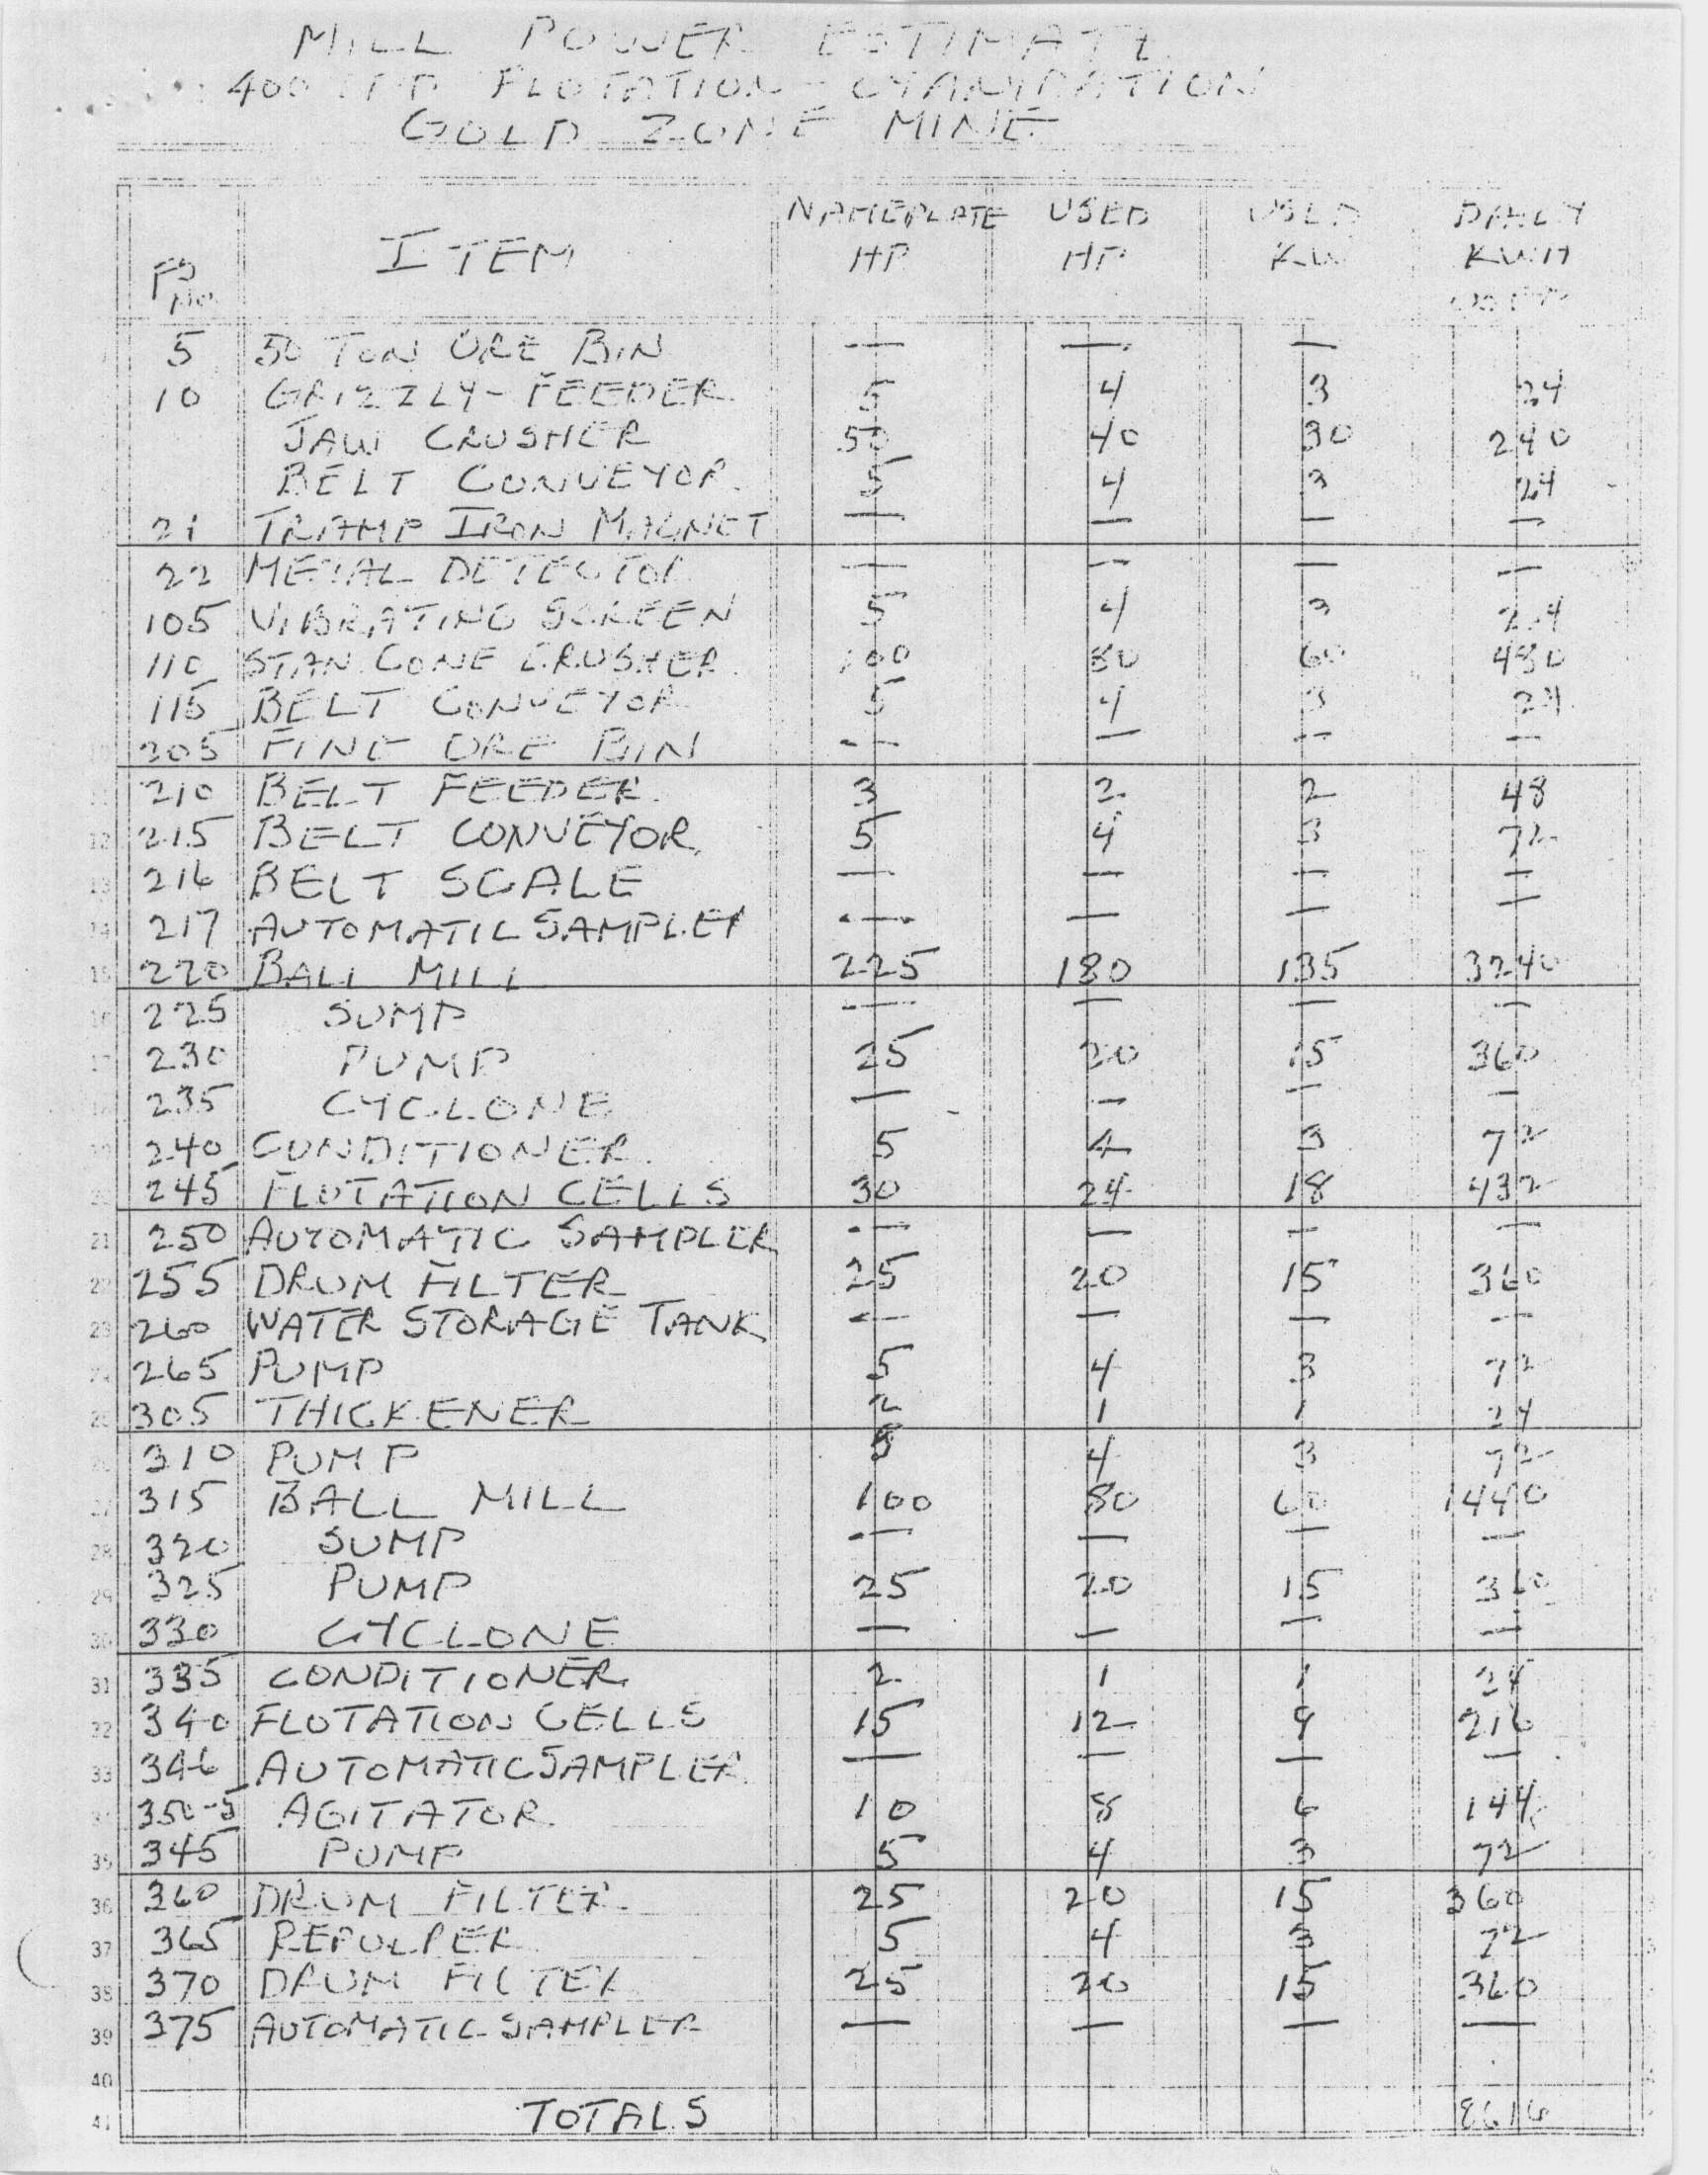 MILL POWER ESTIMATE
400 TPD FLOTATION - CYANIDATION
GOLD ZONE MINE
FS No. ITEM NAMEPLATE HP USED HP USED KW DAILY KWH
5 50 TON ORE BIN — — —
10 GRIZZLY-FEEDER 5 4 3 24
JAW CRUSHER 50 40 30 240
BELT CONVEYOR 5 4 3 24
21 TRAMP IRON MAGNET — — — —
22 METAL DETECTOR — — — —
105 VIBRATING SCREEN 5 4 3 24
110 STAN CONE CRUSHER 100 80 60 480
115 BELT CONVEYOR 5 4 3 24
205 FINE ORE BIN — — — —
210 BELT FEEDER 3 2 2 48
12 215 BELT CONVEYOR 5 4 3 72
13 216 BELT SCALE — — — —
14 217 AUTOMATIC SAMPLER — — — —
15 220 BALL MILL 225 180 135 3240
16 225 SUMP — — — —
17 230 PUMP 25 20 15 360
235 CYCLONE — — — —
240 CONDITIONER 5 4 3 72
245 FLOTATION CELLS 30 24 18 432
21 250 AUTOMATIC SAMPLER — — — —
22 255 DRUM FILTER 25 20 15 360
23 260 WATER STORAGE TANK — — — —
265 PUMP 5 4 3 72
305 THICKENER 2 1 1 24
310 PUMP 5 4 3 72
27 315 BALL MILL 100 80 60 1440
28 320 SUMP — — — —
29 325 PUMP 25 20 15 360
30 330 CYCLONE — — — —
31 335 CONDITIONER 2 1 1 24
32 340 FLOTATION CELLS 15 12 9 216
33 346 AUTOMATIC SAMPLER — — — —
350-5 AGITATOR 10 8 6 144
35 345 PUMP 5 4 3 72
36 360 DRUM FILTER 25 20 15 360
37 365 REPULPER 5 4 3 72
38 370 DRUM FILTER 25 20 15 360
39 375 AUTOMATIC SAMPLER — — — —
40
41 TOTALS 8616